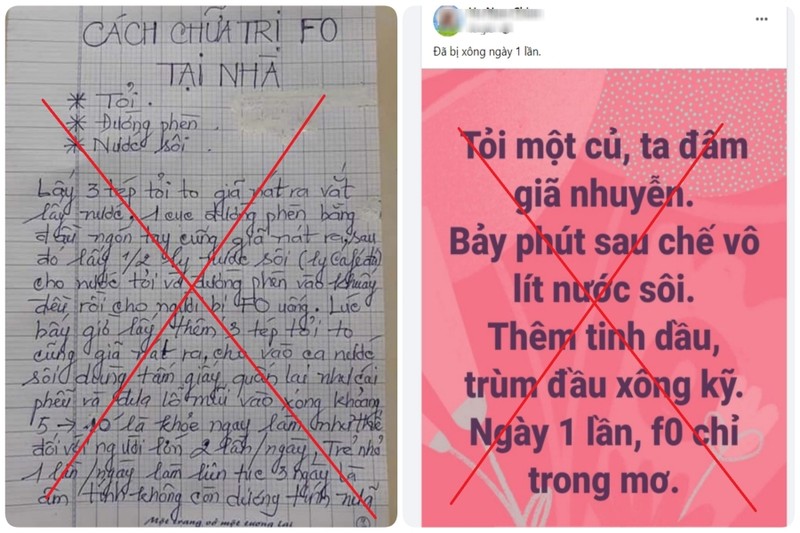 CÁCH CHỮA TRỊ FO
TẠI NHÀ
* Tỏi.
* Đường phèn.
* Nước sôi.
Lấy 3 tép tỏi to giã nát ra vắt
lấy nước. 1 cục đường phèn bằng
đầu ngón tay cũng giã nát ra, sau
đó lấy 1/2 ly nước sôi (ly café đá)
cho nước tỏi và đường phèn vào khuấy
đều rồi cho người bị FO uống. Lúc
bây giờ lấy thêm 3 tép tỏi to
cũng giã nát ra, cho vào ca nước
sôi dùng tấm giấy quấn lại như cái
phễu và đưa lỗ mũi vào xông khoảng
5 → 10' là khỏe ngay làm như thế
đối với người lớn 2 lần/ngày, Trẻ nhỏ
1 lần/ngày làm liên tục 3 ngày là
âm tính không còn dương tính nữa
Một trang vở một tương lai
Đã bị xông ngày 1 lần.
Tỏi một củ, ta đâm
giã nhuyễn.
Bảy phút sau chế vô
lít nước sôi.
Thêm tinh dầu,
trùm đầu xông kỹ.
Ngày 1 lần, f0 chỉ
trong mơ.